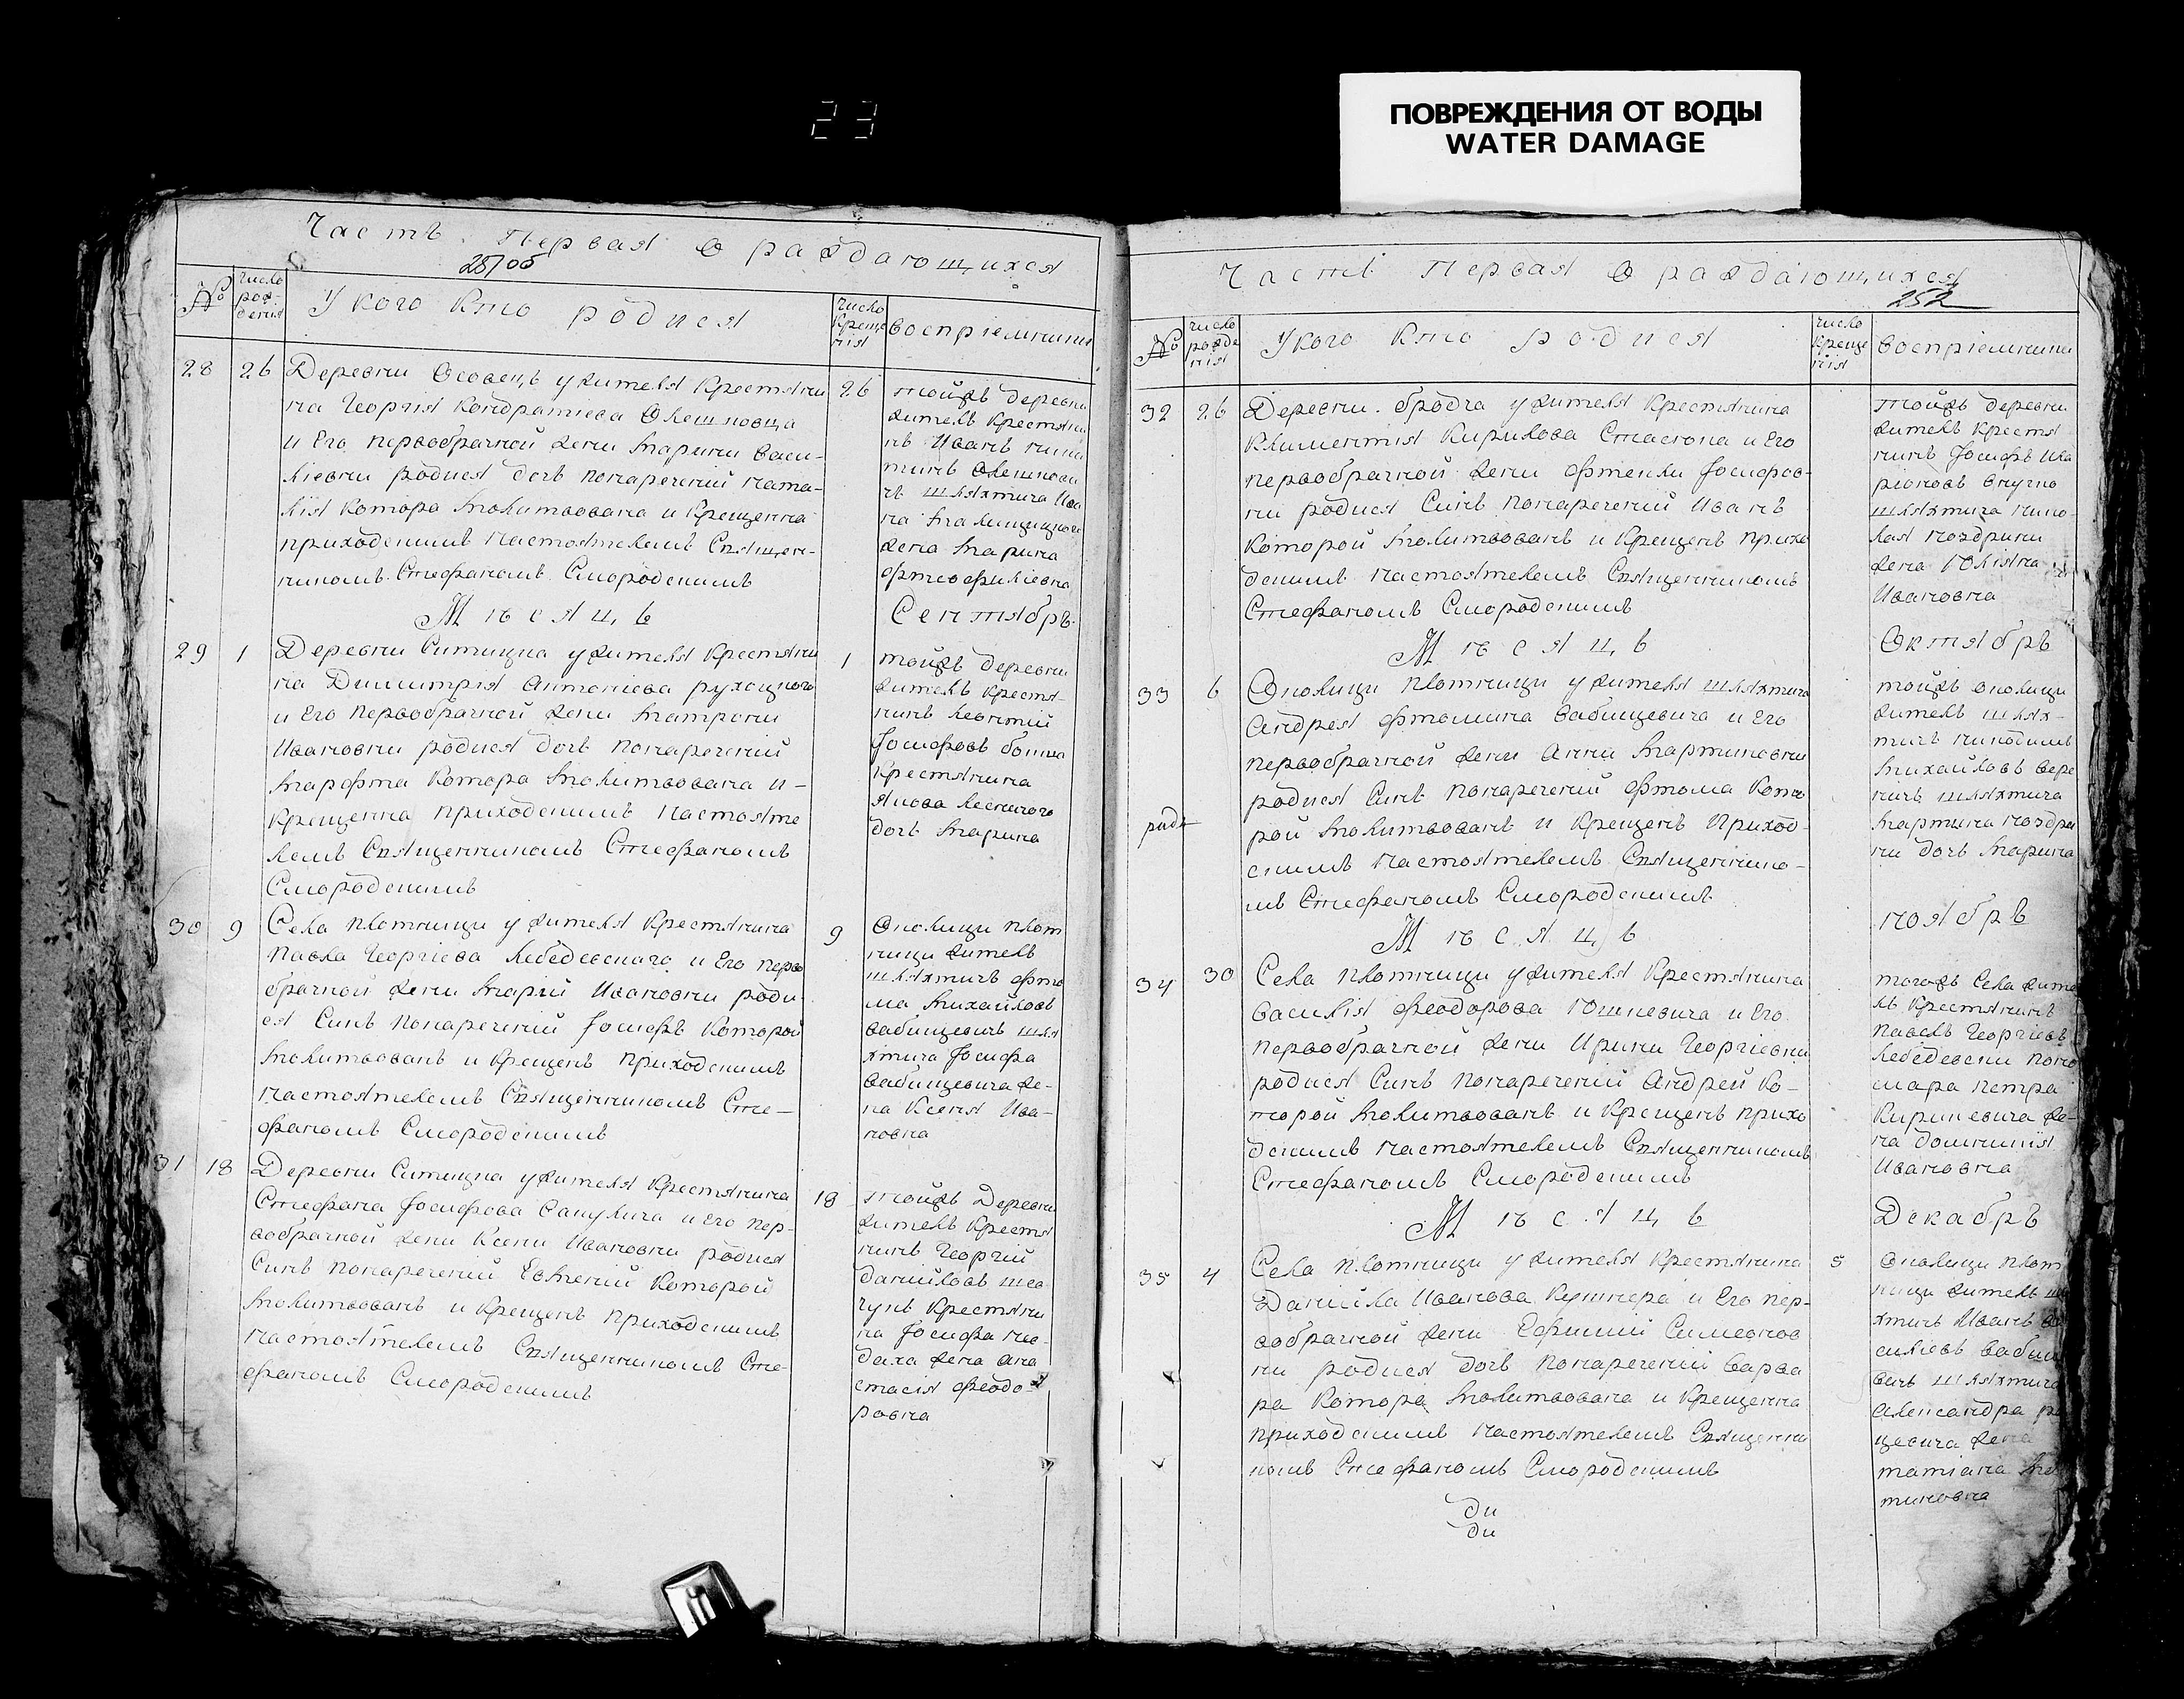 23
ПОВРЕЖДЕНИЯ ОТ ВОДЫ
WATER DAMAGE
Часть Первая О раждающихся
№
Число рождения
У кого Кто родися
Число Крещения
Воспріемники
28 26 26
Деревни Осовецъ у жителя Крестяни
на Георгія Кондратіева
и Его первобрачной жени Марини Васи-
ліевни родися дочь Понареченій Ната-
лія Котора Молитвована и Крещенна
приходскимъ Настоятелемъ Священ-
никомъ Стефаномъ Смородскимъ
тойжъ деревни
житель Крестяни
нъ Иванъ
шляхтича Ива
на
жена Марина
Фтеофиліевна
Мѣсяцъ Сентябръ
29 1 1
Деревни Ситицка у жителя Крестяни
на Димитрія Антоніева
и Его первобрачной жени Матрони
Ивановни родися дочь Понареченій
Марфта Котора Молитвована и-
Крещенна приходскимъ Настояте
лемъ Священникомъ Стефаномъ
Смородскимъ
тойжъ деревни
житель Крестя-
нинъ Леонтій
Іосифовъ
Крестянина
Якова
дочь Марина
30 9 9
Села Плотници у жителя Крестянина
Павла Георгіева Лебедевского и Его перво
брачной жени Маріи Ивановни роди-
ся Синъ Понареченій Іосифъ Которой
Молитвованъ и Крещенъ приходскимъ
Настоятелемъ Священникомъ Сте-
фаномъ Смородскимъ
Околици Плот
ници житель
шляхтичъ Фто
ма Михайловъ
Вабищевичъ шля
хтича Іосифа
Вабищевича же-
на Ксенія Ива-
новна
31 18 18
Деревни Ситицка у жителя Крестянина
Стефана Іосифова и Его пер-
вобрачной жени Ксени Ивановни родися
Синъ Понареченій Евгеній Которой
Молитвованъ и Крещенъ приходскимъ
Настоятелемъ Священникомъ Сте-
фаномъ Смородскимъ
тойжъ Деревни
житель Крестя
нинъ Георгій
Даниловъ Шев
чукъ Крестяни
на Іосифа
жена Ана
стасія Феодо-
ровна
Часть Первая О раждающихся
252
№
Число рожденія
У кого Кто родися
Число Крещенія
Воспріемники
32 26
Деревни Бродча у жителя Крестянина
Климентія Кирилова и Его
первобрачной жени Фтекли Іосифов-
ни родися Синъ Понареченій Иванъ
Которой Молитвованъ и Крещенъ прихо
дскимъ Настоятелемъ Священникомъ
Стефаномъ Смородскимъ
тойжъ деревни
житель Крестя
нинъ Іосифъ
шляхтича Нико
лая Ноздрини
жена Юліяна
Ивановна
Мѣсяцъ Октябръ
33 6
Околици Плотници у жителя шляхтича
Андрея Фтомина Вабищевича и Его
первобрачной жени Анни Мартиновни
родися Синъ Понареченій Фтома Кото
рой Молитвованъ и Крещенъ Приход-
скимъ Настоятелемъ Священнико-
мъ Стефаномъ Смородскимъ
тойжъ околици
житель шлях-
тичъ Никодимъ
Михайловъ Вере
ничъ шляхтича
Мартина Ноздри
ни дочь Марина
Мѣсяцъ Ноябръ
34 30
Села Плотници у жителя Крестянина
Василія Феодорова Юшкевича и Его
первобрачной жени Ирини Георгіевни
родися Синъ Понареченій Андрей Ко-
торой Молитвованъ и Крещенъ прихо
дскимъ Настоятелемъ Священникомъ
Стефаномъ Смородскимъ
тогожъ Села жите
ль Крестянинъ
Павелъ Георгіевъ
Лебедевски Поно
маря Петра
Кирикевича же-
на Домникія
Ивановна
Мѣсяцъ Декабръ
35 4 5
Села Плотници у жителя Крестянина
Данийла Иванова Кушнера и Его пер-
вобрачной жени Ефимии Симеонов
ни родися дочь Понареченій Варва
ра Котора Молитвована и Крещенна
приходскимъ Настоятелемъ Священни
комъ Стефаномъ Смородскимъ
Околици Плот
ници житель
хтичъ Иванъ
силіевъ
вичъ шляхтича
Александра
жена
Татіана
тиновна